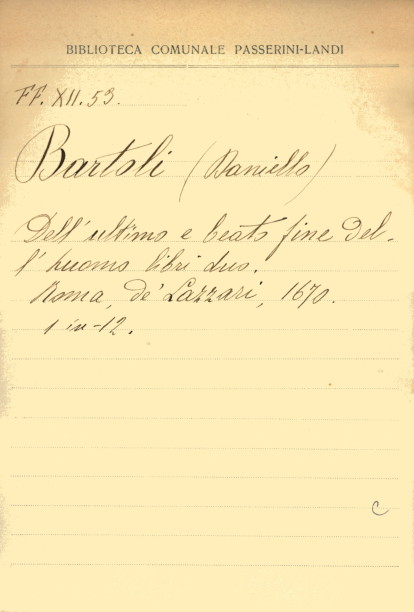 BIBLIOTECA COMUNALE PASSERINI-LANDI
FF. XII. 53.
Bartoli (Daniello)
Dell' ultimo e beato fine del-
l' huomo libri duo.
Roma, de' Lazzari, 1670.
1 in-12.
C